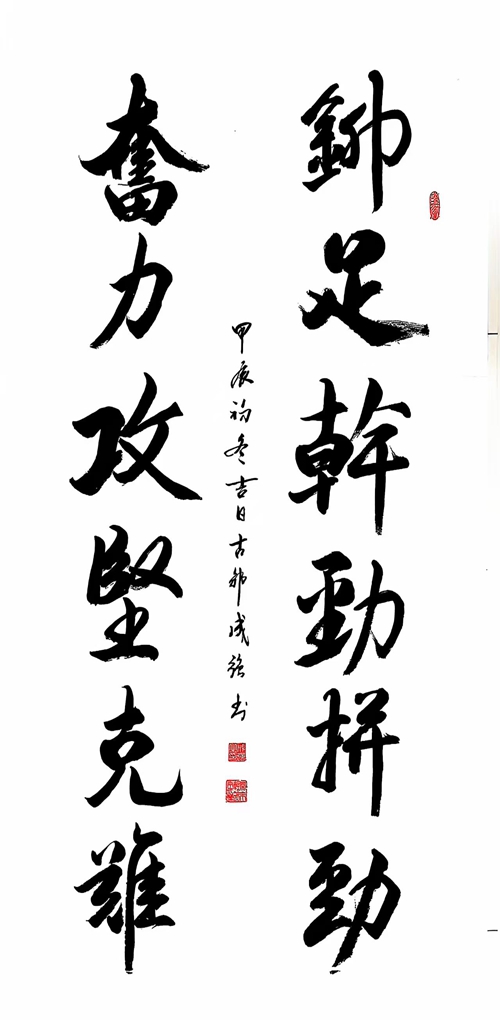 鉚足幹勁拼勁
奮力攻堅克難
甲辰初冬吉日古成強书